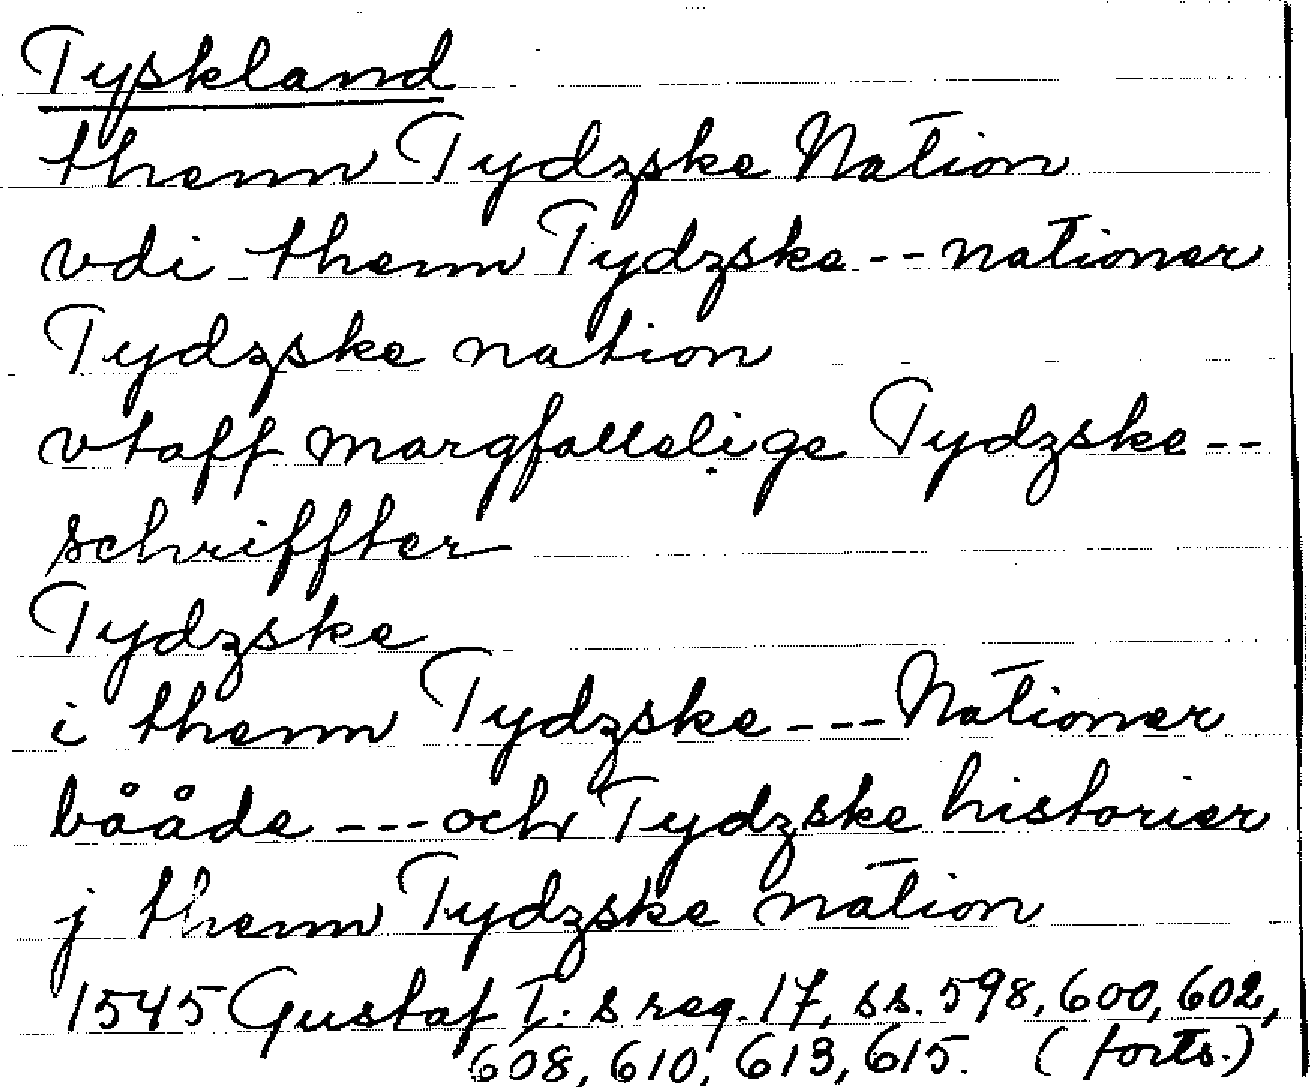 Tyskland
thenn Tydzske Nation
vdi thenn Tydzske -- nationer
Tydzske nation
vtaff margfallelige Tydzske --
schriffter
Tydzske
i thenn Tydzske --- Nationer
bååde --- och Tydzske historier
j thenn Tydzske nation
1545 Gustaf I:s reg. 17, ss. 598, 600, 602,
608, 610, 613, 615. (forts.)